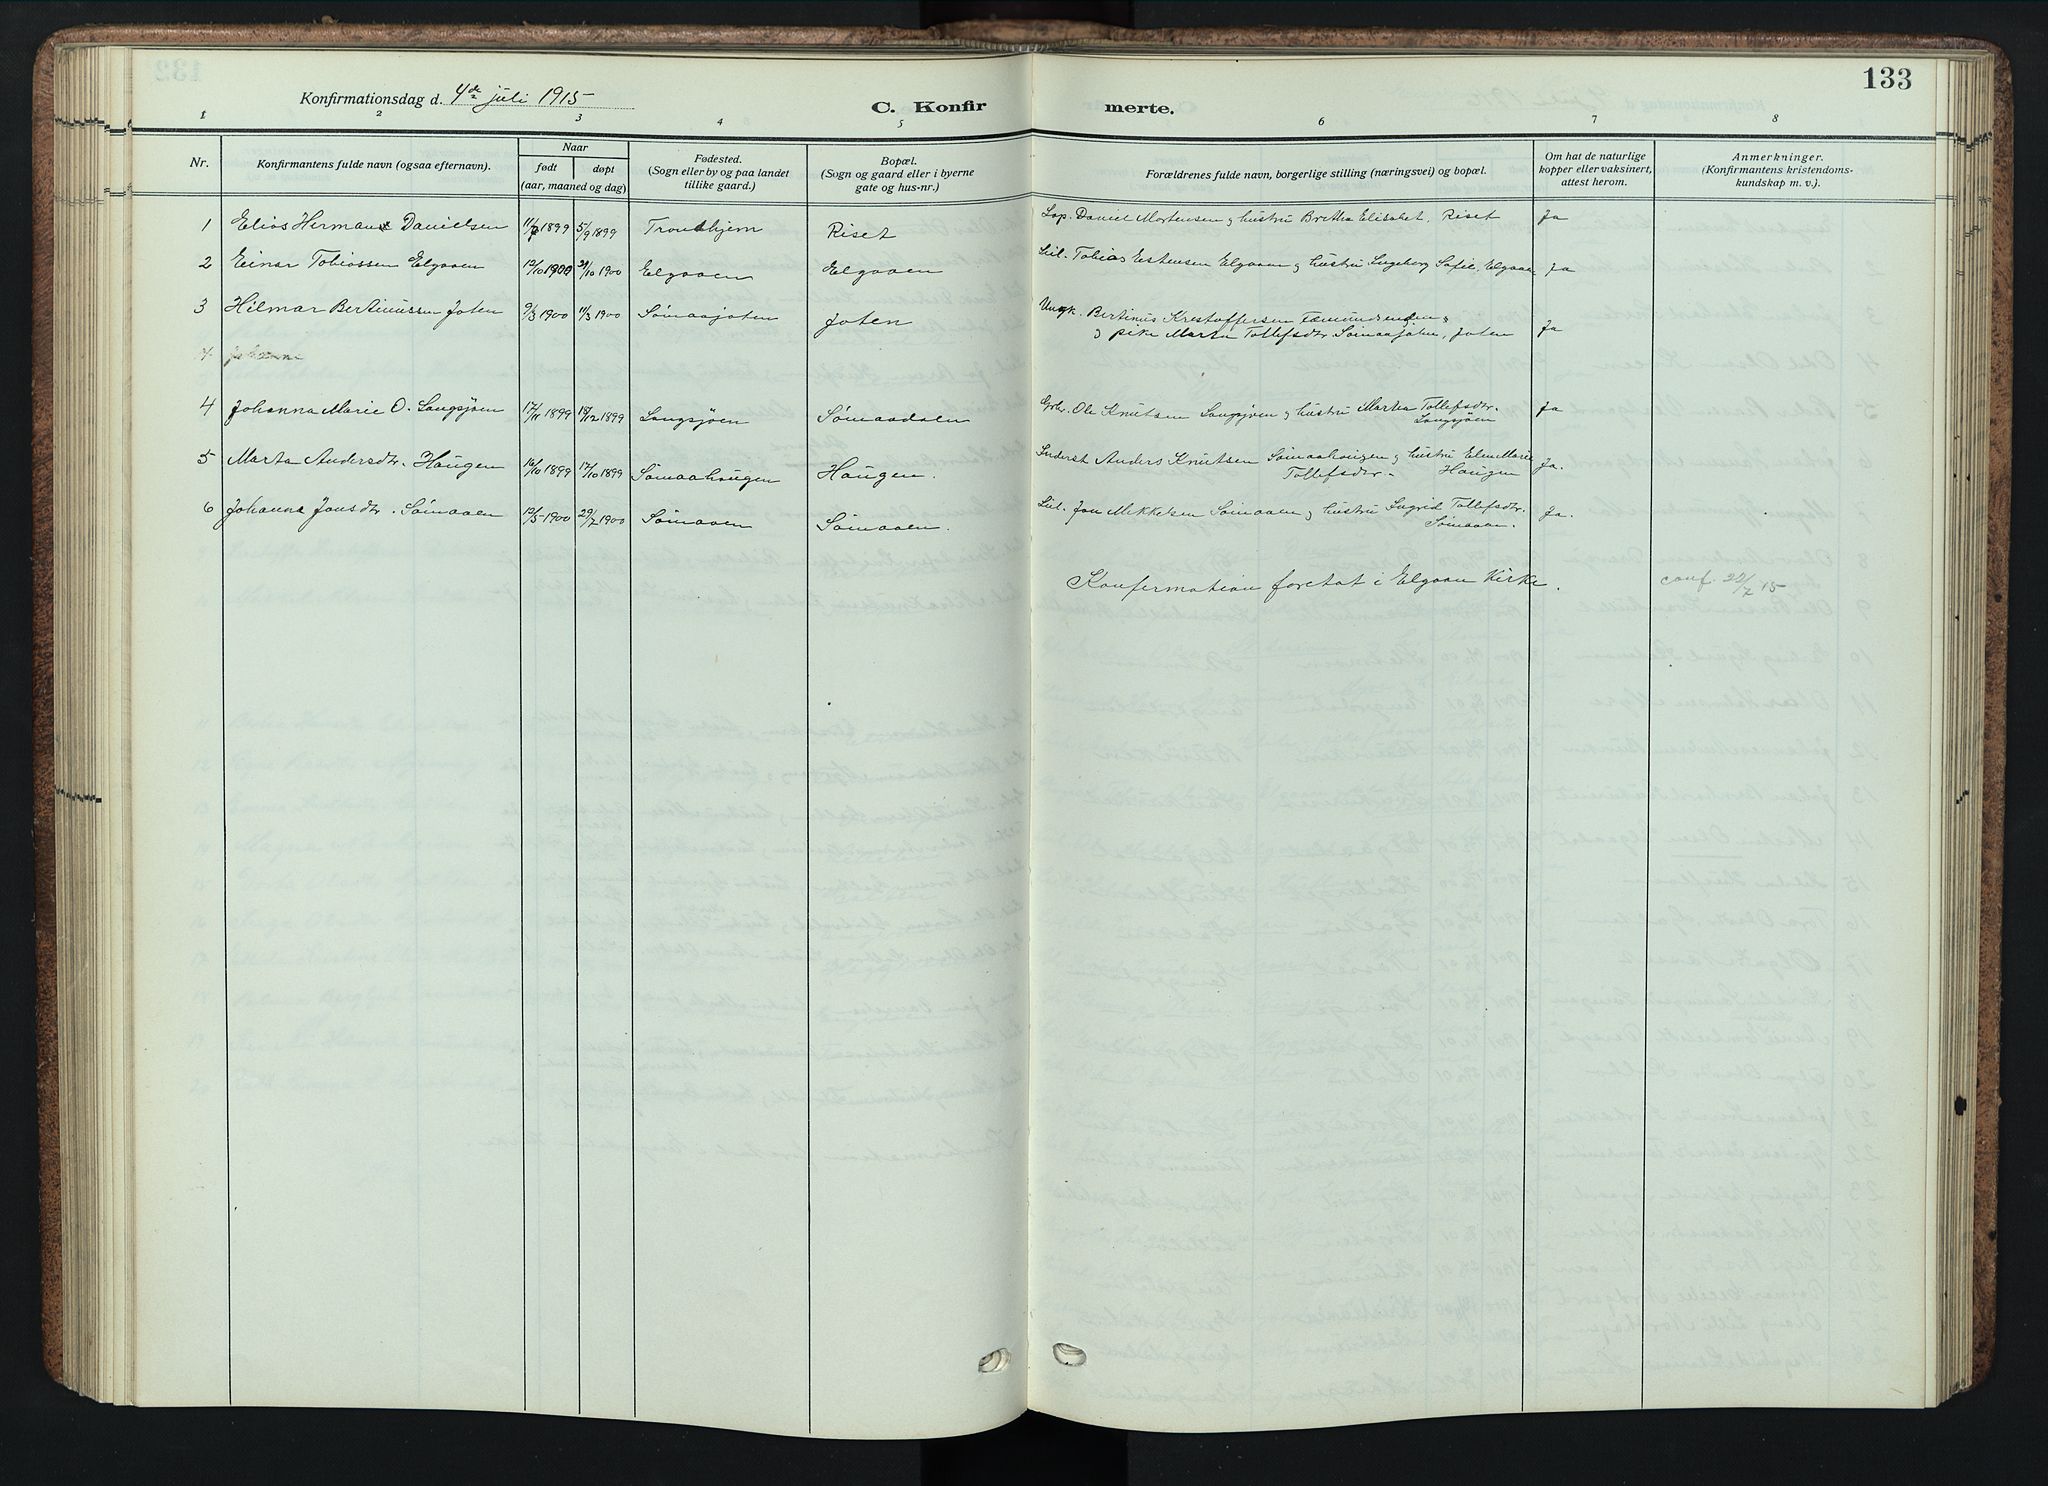 133
Konfirmationsdag d. 4de juli 1915
C. Konfirmerte.
1 2 3 4 5 6 7 8
Nr. Konfirmantens fulde navn (ogsaa efternavn). Naar født døpt (aar, maaned og dag) Fødested. (Sogn eller by og paa landet tillike gaard.) Bopæl. (Sogn og gaard eller i byerne gate og hus-nr.) Forældrenes fulde navn, borgerlige stilling (næringsvei) og bopæl. Om hat de naturlige kopper eller vaksinert, attest herom. Anmerkninger. (Konfirmantens kristendomskundskap m. v.).
1 Elias Herman Danielsen 11/7 1899 5/9 1899 Trondhjem Riset Lap. Daniel Mortensen og hustru Bretha Elisabet. Riset Ja
2 Einar Tobiassen Elgaaen 12/10 1900 21/10 1900 Elgaaen Elgaaen Leil. Tobias Estensen Elgaaen og hustru Ingeborg Sofie, Elgaaen Ja
3 Hilmar Bertinussen Joten 9/3 1900 11/3 1900 Sømaajoten Joten Ungk. Bertinus Kristoffersen Fæmundsenden
og pike Marta Tollefsdtr Sømaajoten, Joten Ja
4 Johanna
4 Johanna Marie O. Langsjøen 17/11 1899 18/12 1899 Langsjøen Sømaadalen Gbr. Ole Knutsen Langsjøen og hustru Marta Tollefsdtr. Ja
Langsjøen
5 Marta Andersdtr. Haugen 16/10 1899 17/10 1899 Sømaahaugen Haugen. Inderst Anders Knutsen Sømaahaugen og hustru Elen Marie Ja.
Tollefsdtr. Haugen
6 Johanna Jonsdtr. Sømaaen 12/5 1900 29/7 1900 Sømaaen Sømaaen. Leil. Jon Mikkelsen Sømaaen og hustru Ingrid Tollefsdtr. Ja.
Sømaaen.
Konfermation foretat i Elgaaen Kirke. conf. 22/7 15